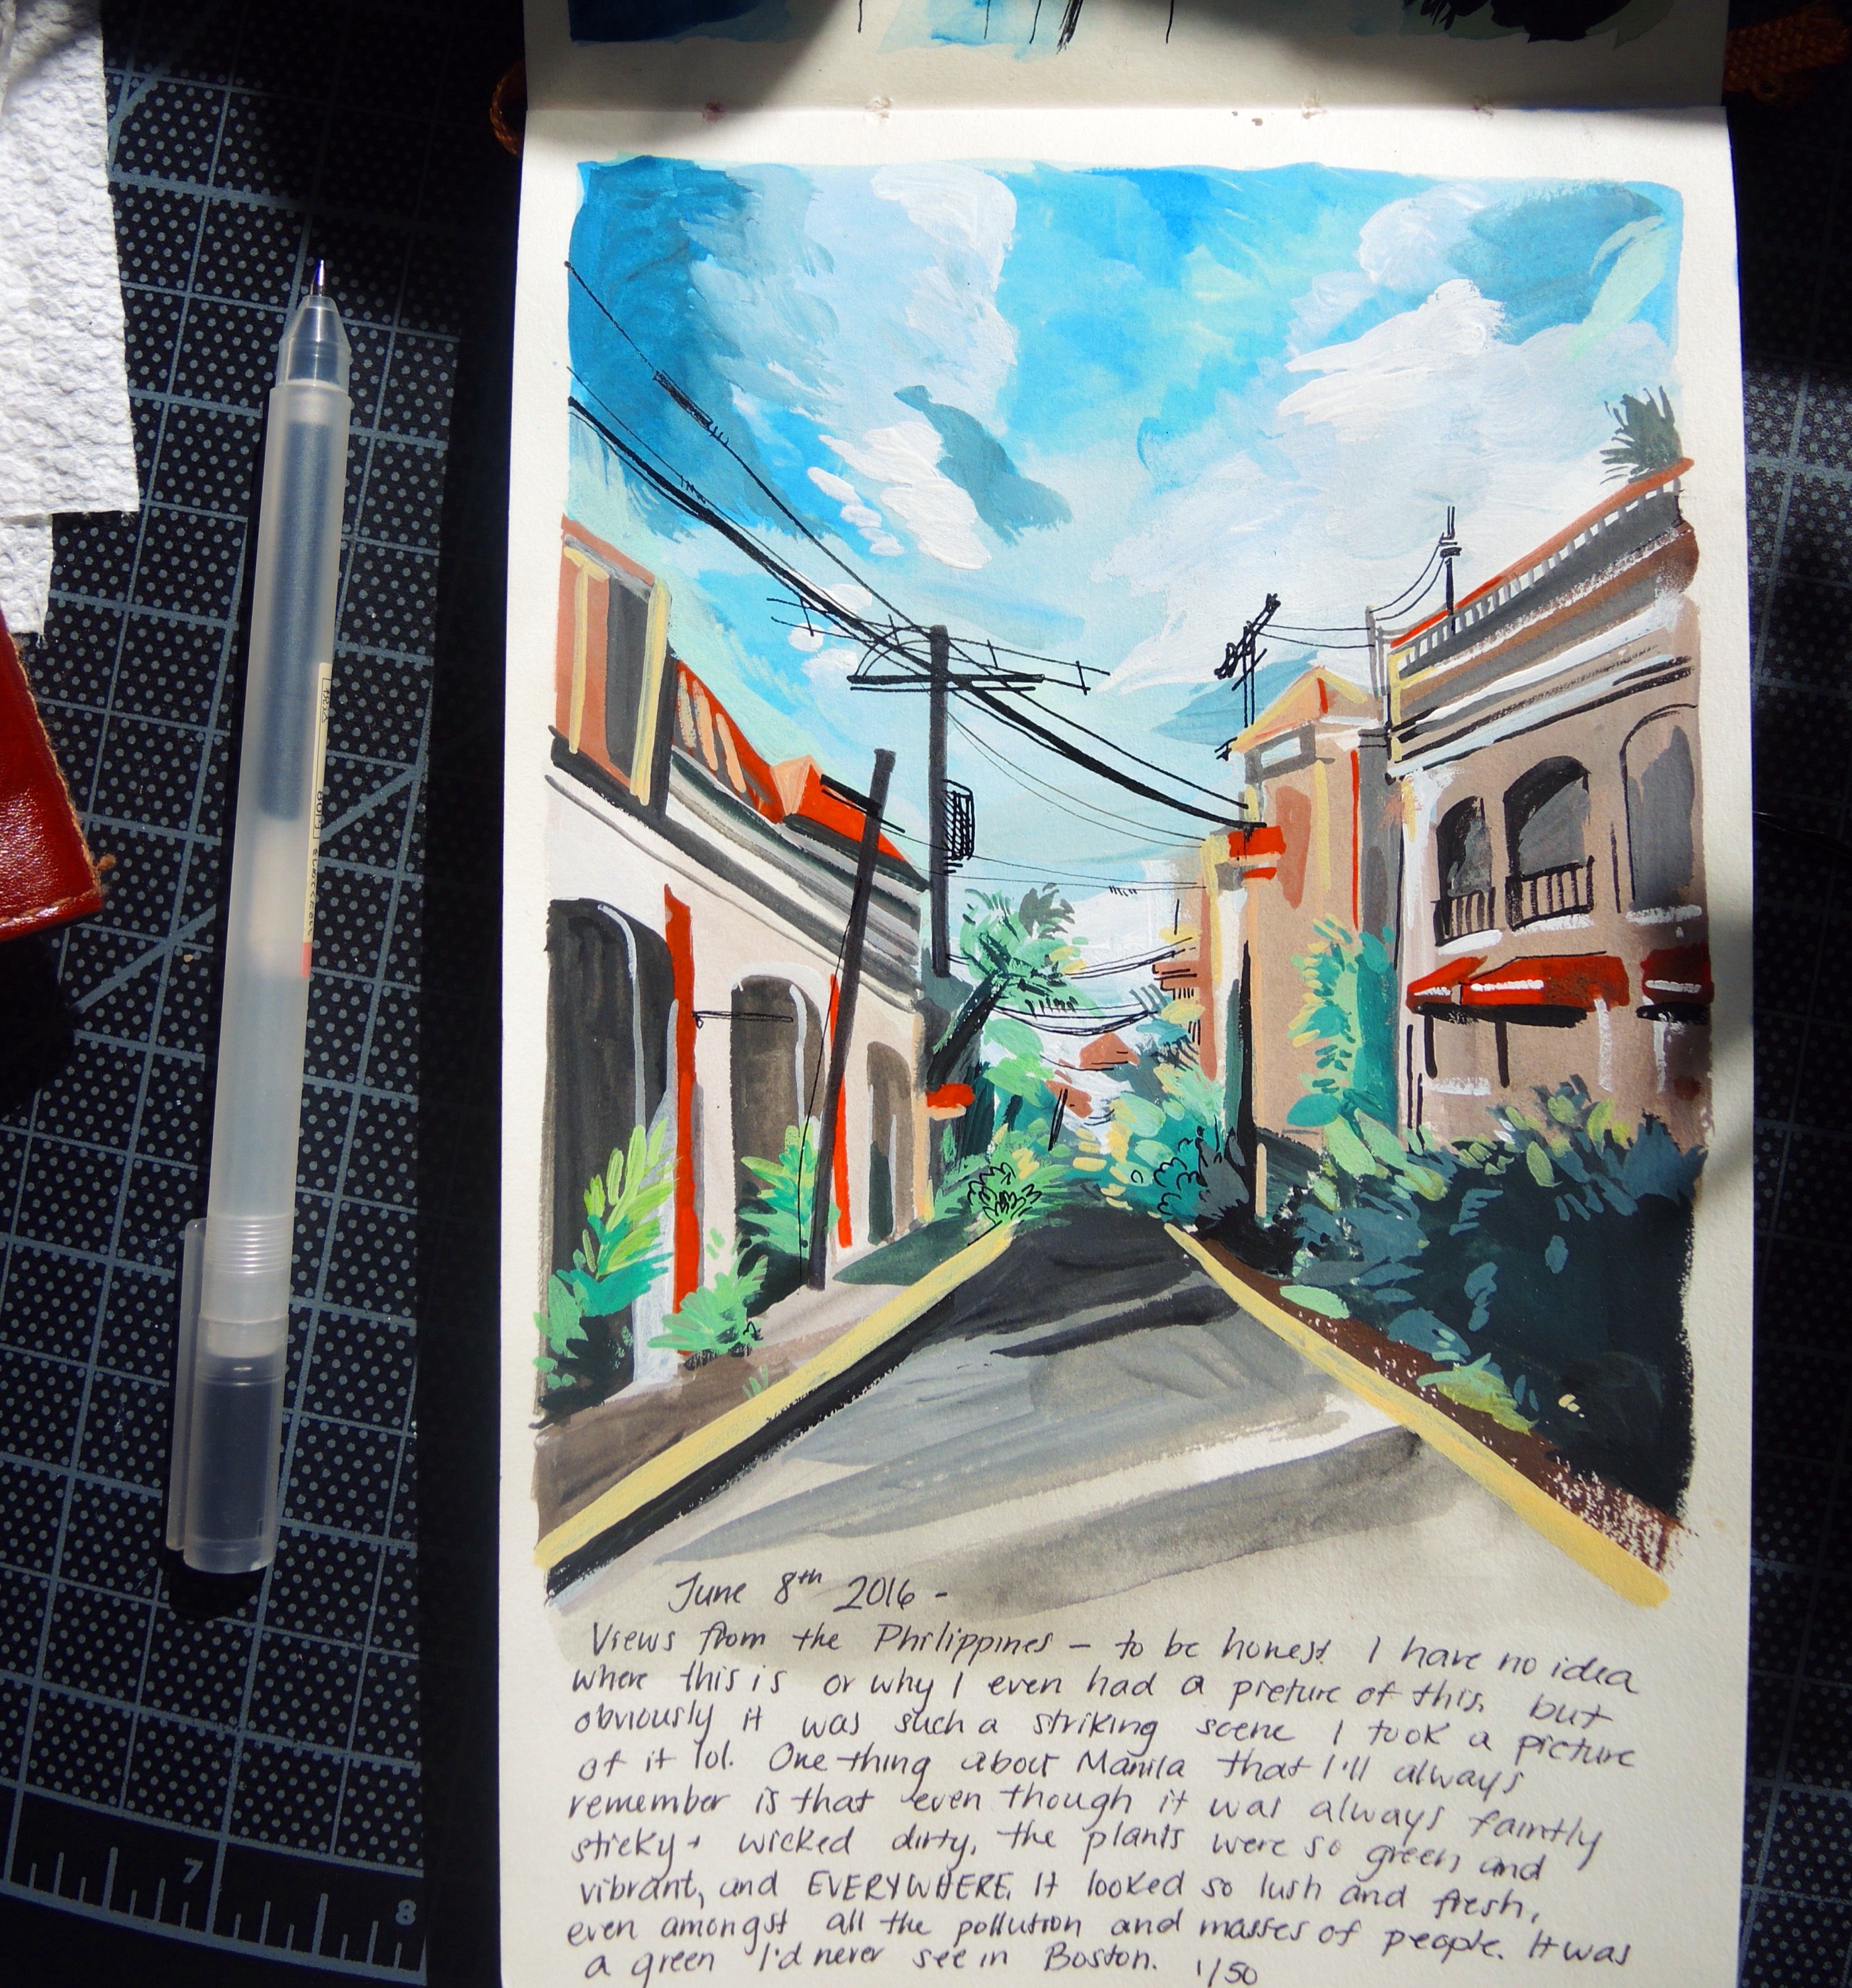 June 8th 2016 -
Views from the Philippines - to be honest I have no idea
where this is or why I even had a picture of this, but
obviously it was such a striking scene I took a picture
of it lol. One thing about Manila that I'll always
remember is that even though it was always faintly
sticky + wicked dirty, the plants were so green and
vibrant, and EVERYWHERE. It looked so lush and fresh,
even amongst all the pollution and masses of people. It was
a green I'd never see in Boston. 1/50
7
8